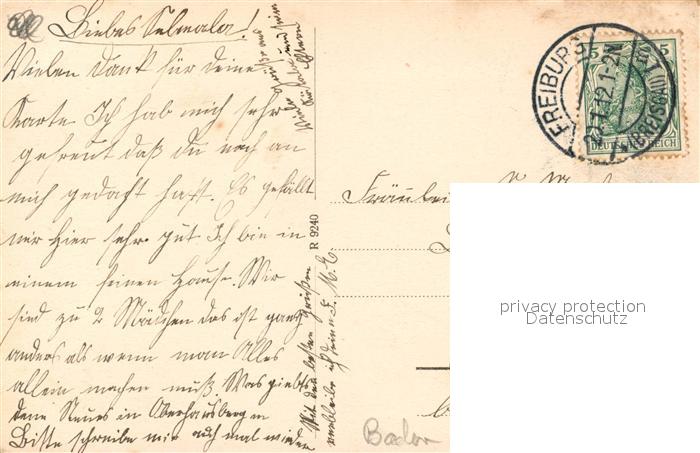 Liebes Selmale!
Vielen Dank für deine
Karte Ich hab mich sehr
gefreut daß du noch an
mich gedacht hast. Es gefällt
mir hier sehr gut Ich bin in
einem feinen Hause. Wir
sind zu 2 Mädchen das ist ganz
anders als wenn man Alles
allein machen muß. Was giebts
denn Neues in Oberhausbergen
Bitte schreibe mir auch mal wieder
Mit den besten Grüßen
verbleibe ich deine L. M. E
R 9240
FREIBURG
(BREISGAU)
1.12.1-2N
5 5
DEUTSCHES REICH
Fräulein
privacy protection
Datenschutz
Baden